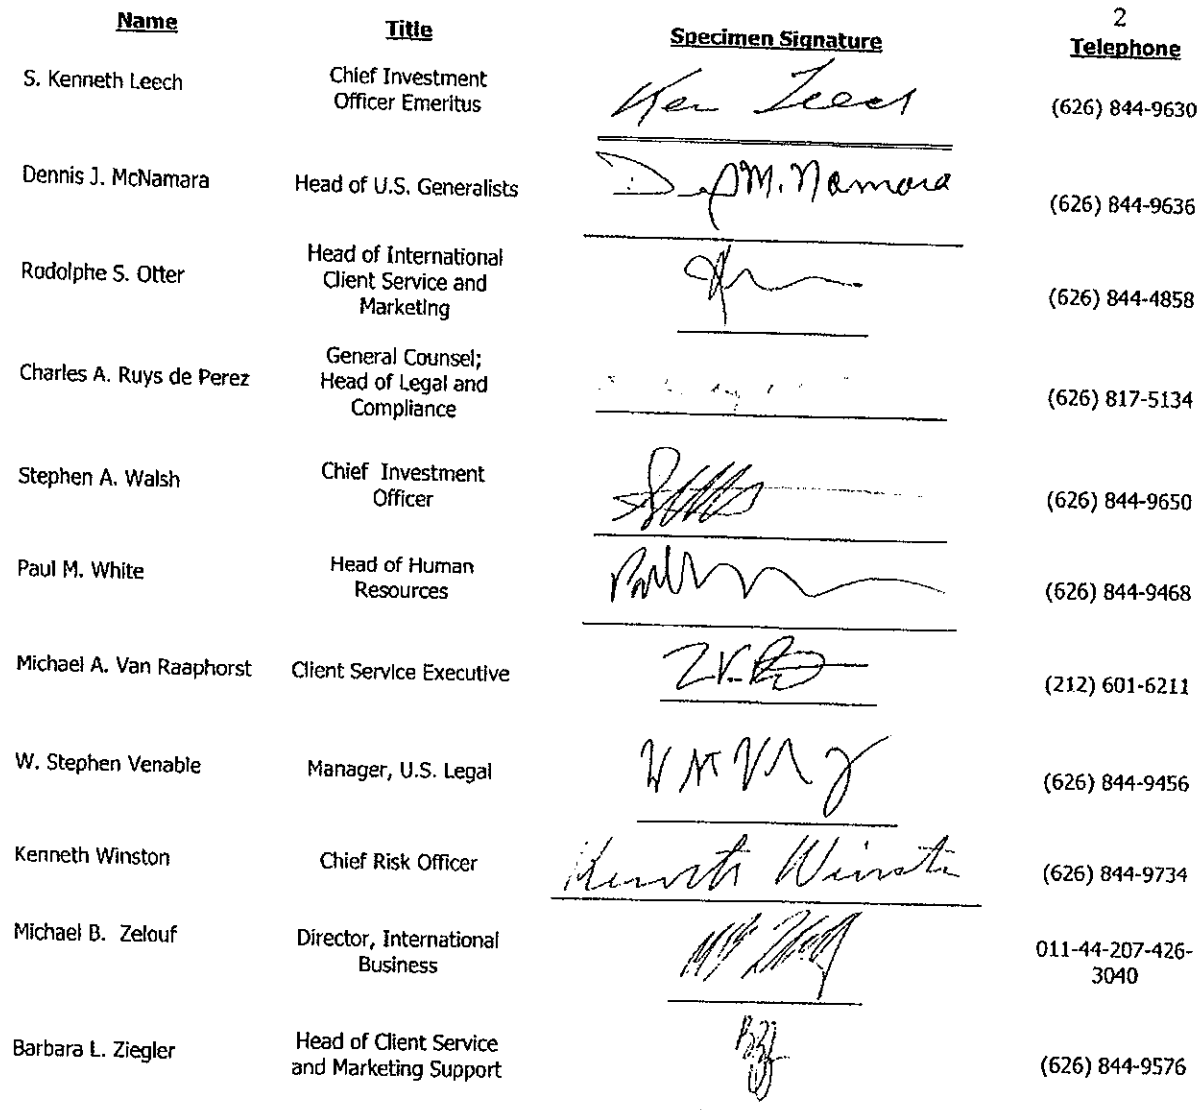 2
Name Title Specimen Signature Telephone
S. Kenneth Leech Chief Investment Officer Emeritus Ken Leech (626) 844-9630
Dennis J. McNamara Head of U.S. Generalists (626) 844-9636
Rodolphe S. Otter Head of International Client Service and Marketing (626) 844-4858
Charles A. Ruys de Perez General Counsel; Head of Legal and Compliance (626) 817-5134
Stephen A. Walsh Chief Investment Officer (626) 844-9650
Paul M. White Head of Human Resources (626) 844-9468
Michael A. Van Raaphorst Client Service Executive (212) 601-6211
W. Stephen Venable Manager, U.S. Legal (626) 844-9456
Kenneth Winston Chief Risk Officer Kenneth Winston (626) 844-9734
Michael B. Zelouf Director, International Business 011-44-207-426-3040
Barbara L. Ziegler Head of Client Service and Marketing Support (626) 844-9576